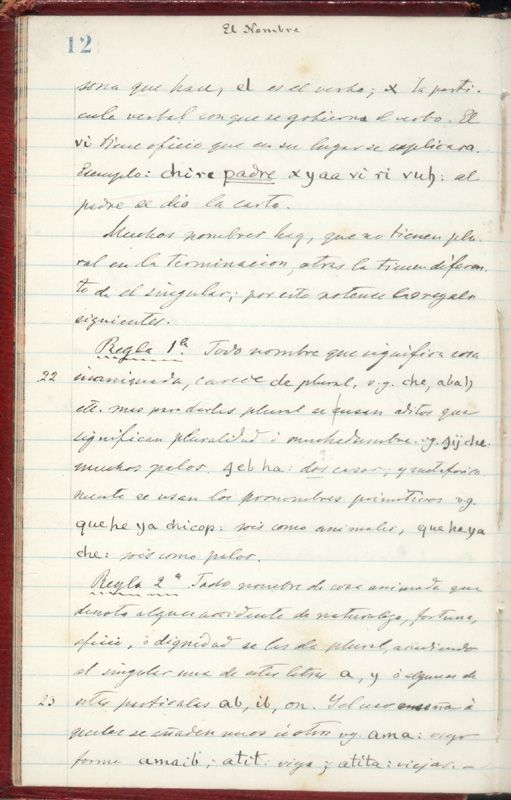 El Nombre
12
sona que hace, el es el verbo; x la parti-
cula verbal con que se gobierna el verbo. El
vi tiene oficio que en su lugar se explicara.
Exemplo: chire padre xyaa vi ri vuh: al
padre se dio la carta.
Muchos nombres hay, que no tienen plu-
ral en la terminacion, otras la tienen diferen-
te de el singular; por esto notense las reglas
siguientes.
Regla 1ª. Todo nombre que significa cosa
22 inanimada, carece de plural, v.g. che, abah,
etc. mas para darles plural se usan aditos que
significan pluralidad ó muchedumbre. vg. che:
muchos palos. ha: dos casas; y metafórica-
mente se usan los pronombres primitivos v.g.
quehe ya chicop: sois como animales, quehe ya
che: sois como palos.
Regla 2ª Todo nombre de cosa animada que
denota algun accidente de naturaleza, fortuna,
oficio, ó dignidad se les da plural, anadiendo
al singular una de estas letras a, y ó algunas de
23 estas particulas ab, ib, on. Y el uso enseña á
quales se añaden unos ú otros vg. ama: viejo
forma amaib; atit: vieja; atita: viejas. —